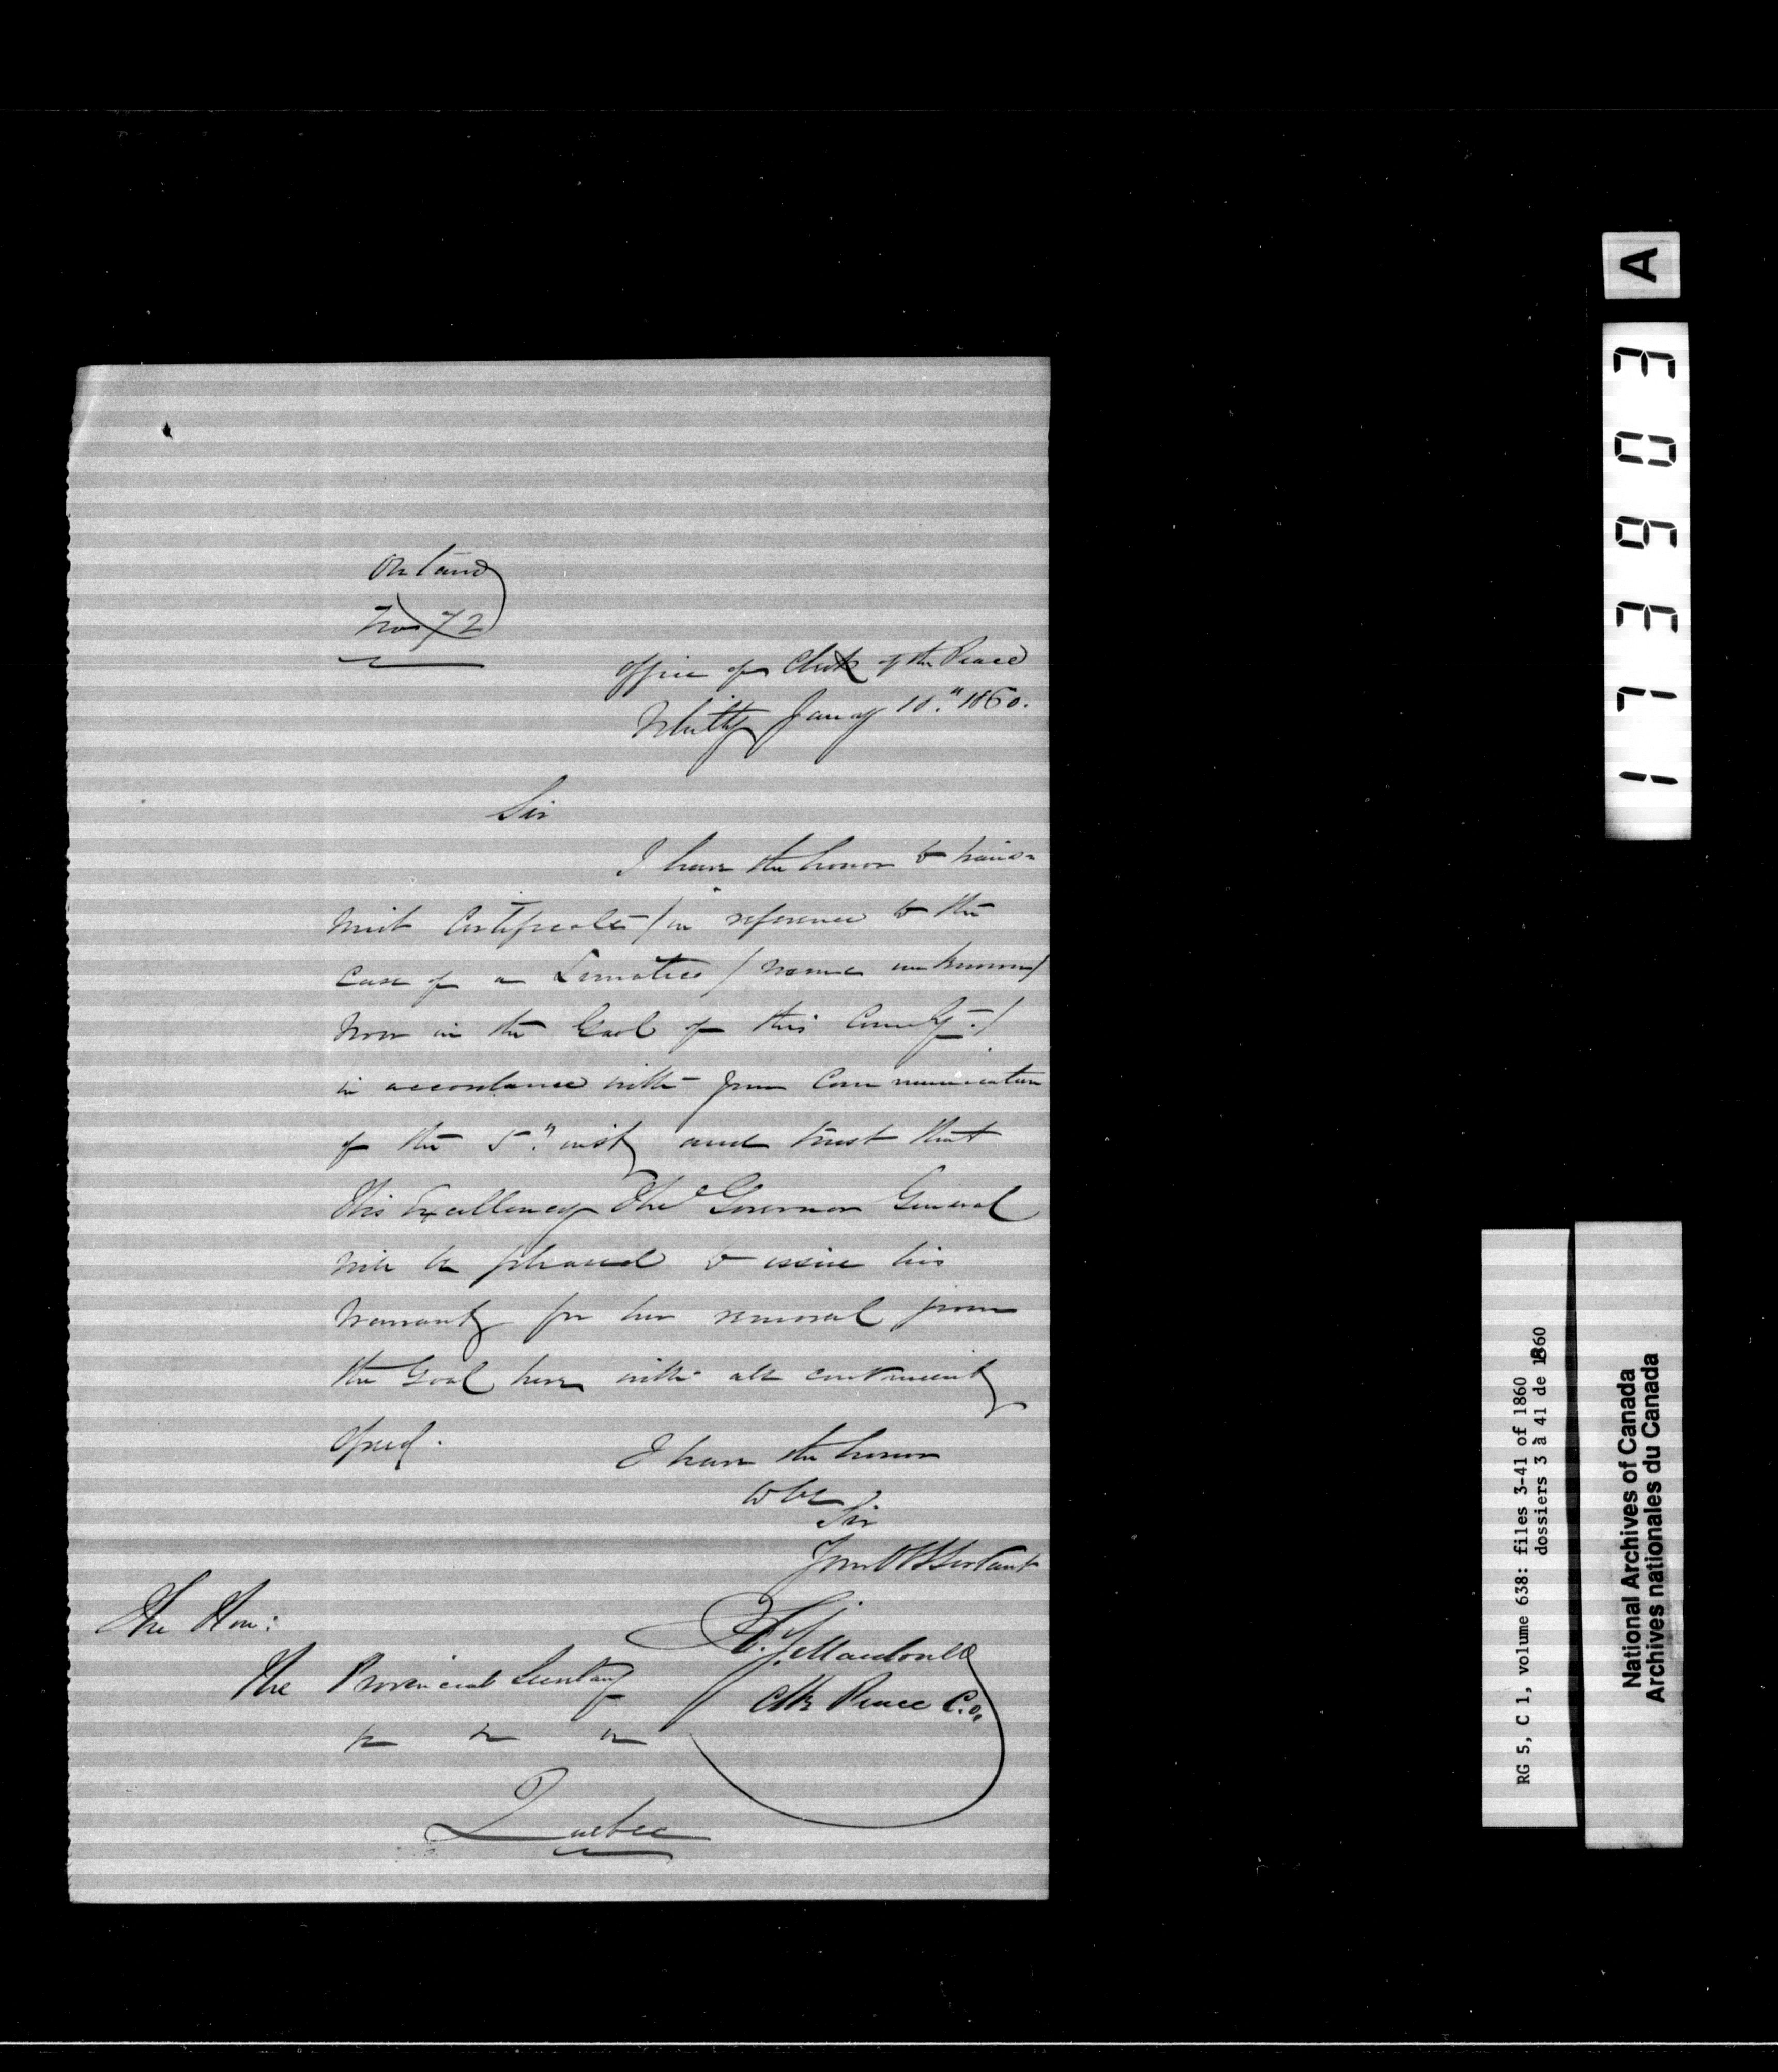 On Land
No 72
Office of Clerk of the Peace
Whitby Jany 10." 1860.
Sir
I have the honor to trans-
mit Certificate / in reference to the
case of a Lunatic / name unknown /
now in the Gaol of this County /
in accordance with your Communication
of the 5." inst, and trust that
His Excellency The Governor General
will be pleased to issue his
Warrant for her removal from
the Gaol here with all convenient
speed.
I have the honor
to be
Sir
Your Ob Servant
Macdonell
Clk Peace C.O.
The Hon:
The Provincial Secretary
Quebec
A
173903
RG 5, C 1, volume 638: files 3-41 of 1860
dossiers 3 à 41 de 1860
National Archives of Canada
Archives nationales du Canada